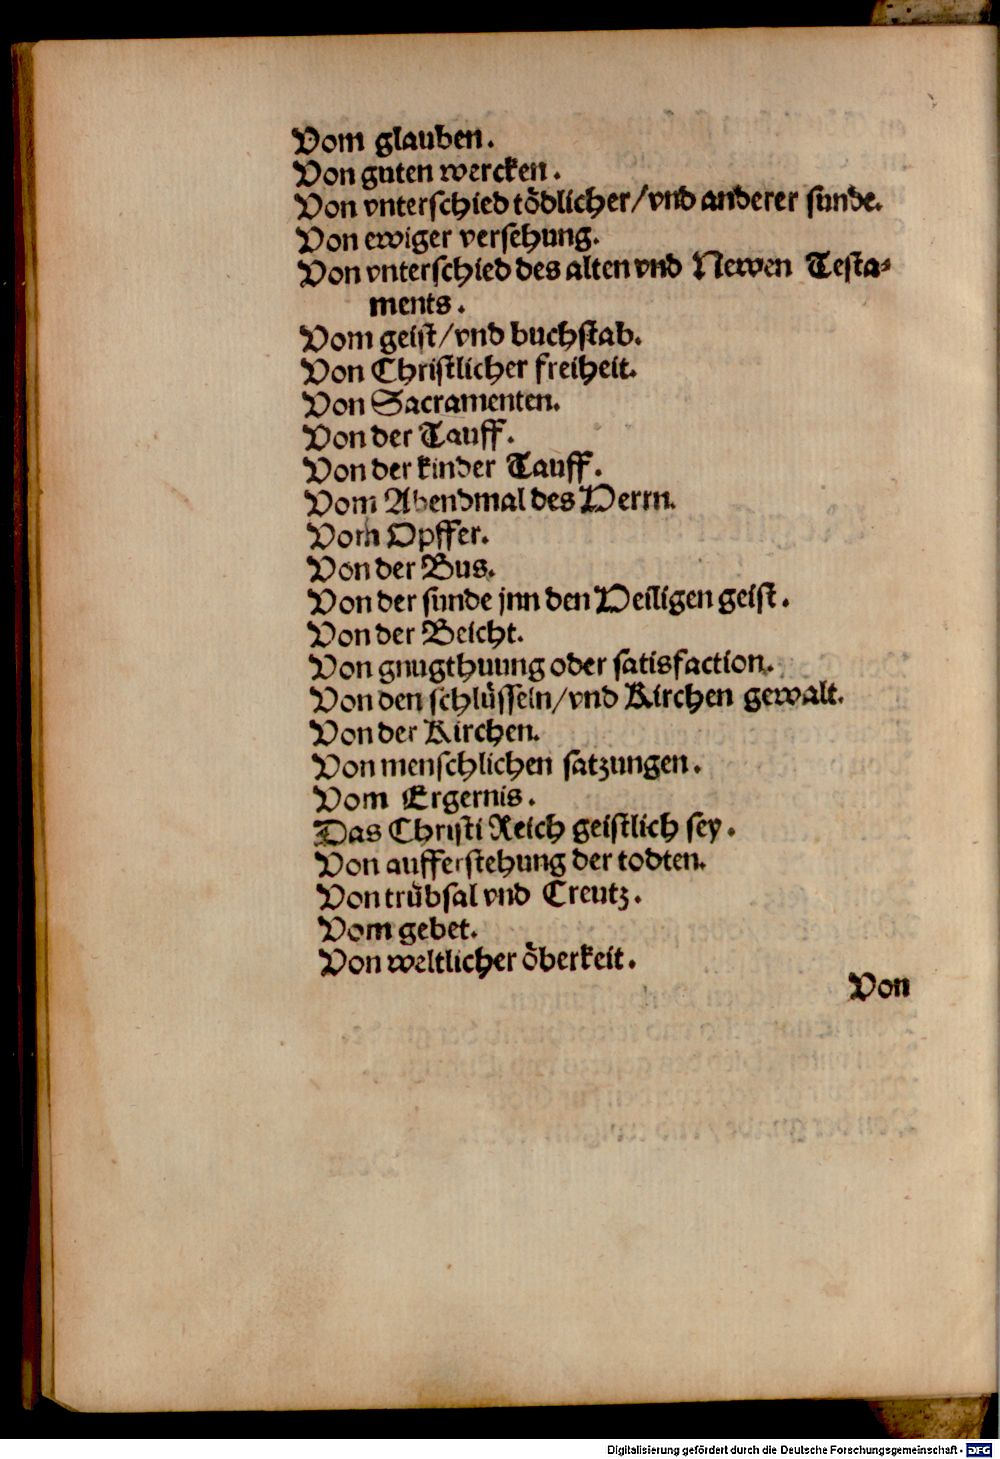 Vom glauben.
Von guten wercken.
Von vnterschied tödlicher/vnd anderer sunde.
Von ewiger versehung.
Von vnterschied des alten vnd Newen Testa⸗
ments.
Vom geist/vnd buchstab.
Von Christlicher freiheit.
Von Sacramenten.
Von der Tauff.
Von der kinder Tauff.
Vom Abendmal des Herrn.
Vom Opffer.
Von der Bus.
Von der sunde jnn den Heiligen geist.
Von der Beicht.
Von gnugthuung oder satisfaction.
Von den schlüsseln/vnd Kirchen gewalt.
Von der Kirchen.
Von menschlichen satzungen.
Vom Ergernis.
Das Christi Reich geistlich sey.
Von aufferstehung der todten.
Von trübsal vnd Creutz.
Vom gebet.
Von weltlicher öberkeit.
Von
Digitalisierung gefördert durch die Deutsche Forschungsgemeinschaft - DFG